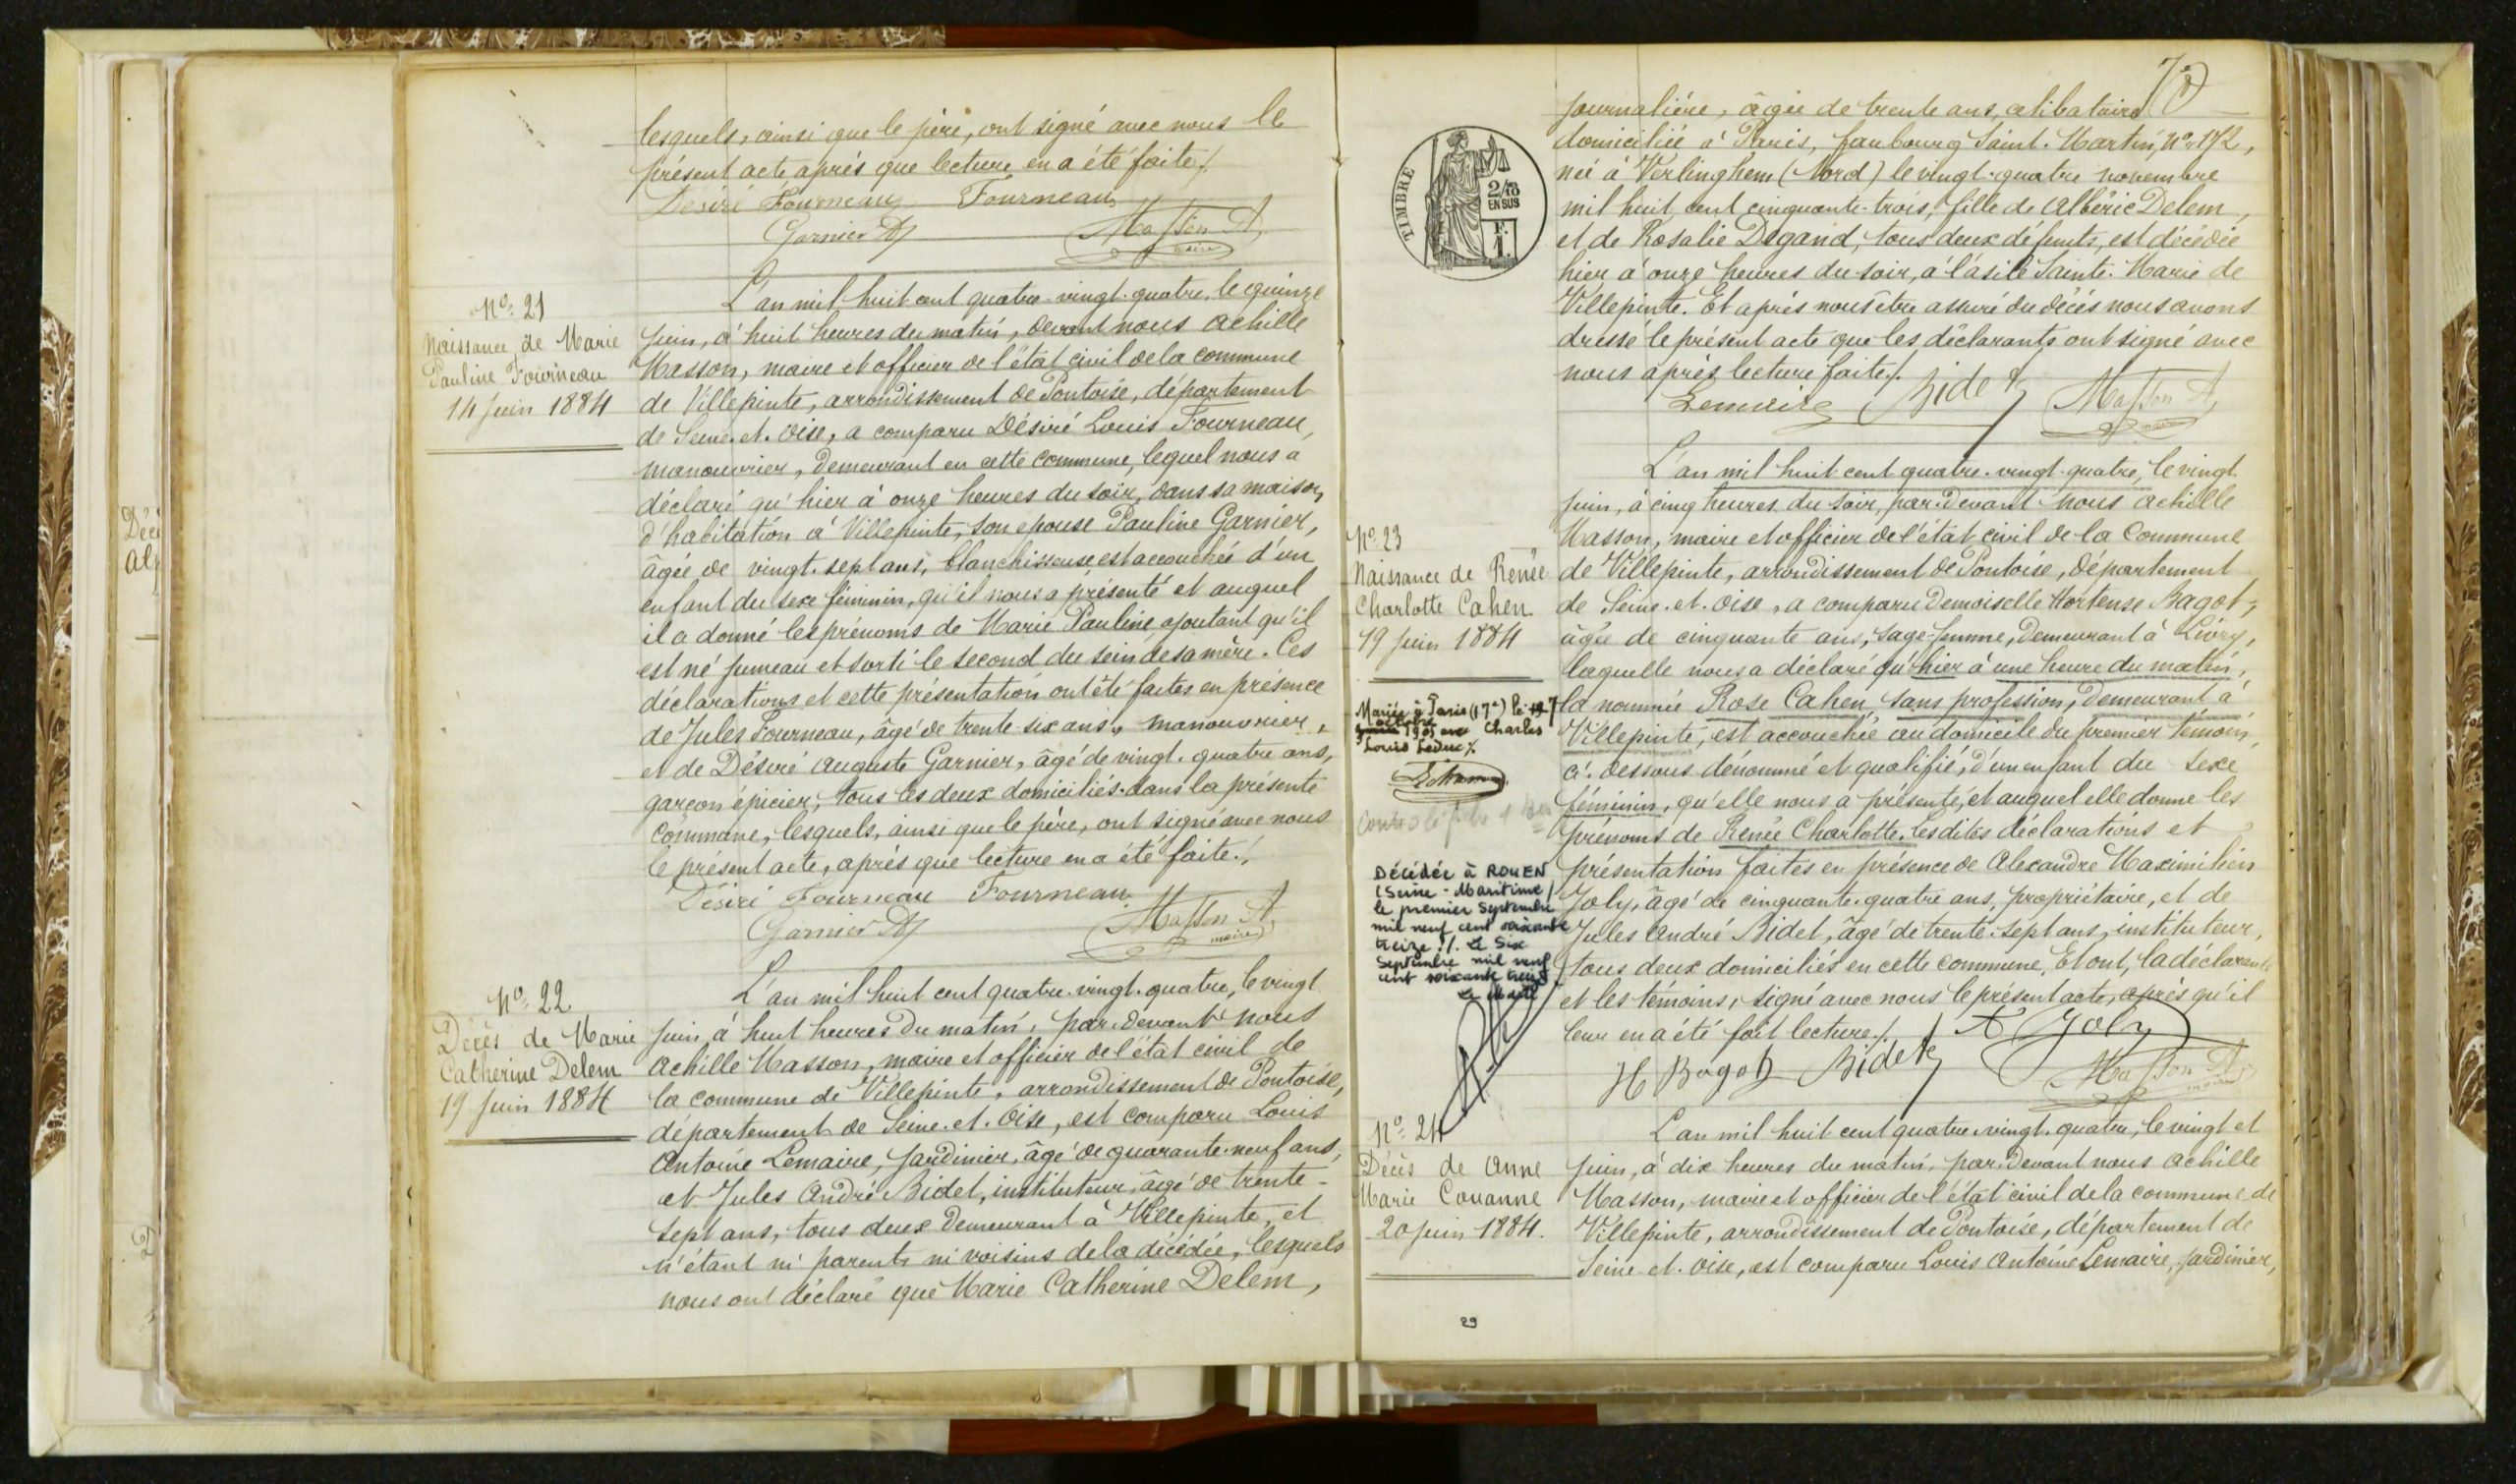 lesquels, ainsi que le père, ont signé avec nous le
présent acte après que lecture en a été faite/.
Désiré Fourneau Fourneau
Garnier Masson A
maire
Nº 21
Naissance de Marie
Pauline Fourneau
14 Juin 1884
L'an mil huit cent quatre-vingt-quatre, le quinze
Juin, à huit heures du matin, devant nous Achille
Masson, maire et officier de l'état civil de la commune
de Villepinte, arrondissement de Pontoise, département
de Seine-et-Oise, a comparu Désiré Louis Fourneau,
manouvrier, demeurant en cette commune, lequel nous a
déclaré qu'hier à onze heures du soir, dans sa maison
d'habitation à Villepinte, son épouse Pauline Garnier,
âgée de vingt-sept ans, blanchisseuse est accouchée d'un
enfant du sexe féminin, qu'il nous a présenté et auquel
il a donné les prénoms de Marie Pauline ajoutant qu'il
est né jumeau et sorti le second du sein de sa mère. Ces
déclarations et cette présentation ont été faites en présence
de Jules Fourneau, âgé de trente-six ans, manouvrier,
et de Désiré Auguste Garnier, âgé de vingt-quatre ans,
garçon épicier, tous les deux domiciliés dans la présente
Commune, lesquels, ainsi que le père, ont signé avec nous
le présent acte, après que lecture en a été faite./.
Désiré Fourneau Fourneau
Garnier Masson A
maire
Nº 22
Décès de Marie
Catherine Delem
19 Juin 1884
L'an mil huit cent quatre-vingt-quatre, le vingt
Juin, à huit heures du matin, par-devant nous
Achille Masson, maire et officier de l'état civil de
la commune de Villepinte, arrondissement de Pontoise,
département de Seine-et-Oise, est comparu Louis
Antoine Lemaire, Jardinier, âgé de quarante-neuf ans,
et Jules André Bidet, instituteur, âgé de trente-
sept ans, tous deux demeurant à Villepinte, et
n'étant ni parents ni voisins de la décédée, lesquels
nous ont déclaré que Marie Catherine Delem,
journalière, âgée de trente ans, célibataire
domiciliée à Paris, faubourg Saint-Martin, Nº 172,
née à Verlinghem (Nord) le vingt-quatre novembre
mil huit cent cinquante-trois, fille de Albéric Delem,
et de Rosalie Degand, tous deux défunts, est décédée
hier à onze heures du soir, à l'asile Sainte-Marie de
Villepinte. Et après nous être assuré du décès nous avons
dressé le présent acte que les déclarants ont signé avec
nous après lecture faite/.
Lemaire Bidet Masson A
maire
TIMBRE
2/10
EN SUS
F.
1.
Nº 23
Naissance de Renée
Charlotte Cahen
19 Juin 1884
Mariée à Paris (17e) le 7
octobre
1905 avec Charles
Louis Leduc/.
Décédée à ROUEN
(Seine-Maritime)
le premier Septembre
mil neuf cent soixante
treize./. Le Six
Septembre mil neuf
cent soixante treize
Le Maire
L'an mil huit cent quatre-vingt-quatre, le vingt
Juin, à cinq heures du soir, par-devant nous Achille
Masson, maire et officier de l'état civil de la Commune
de Villepinte, arrondissement de Pontoise, Département
de Seine-et-Oise, a comparu Demoiselle Hortense Bagot,
âgée de cinquante ans, sage-femme, Demeurant à Livry,
laquelle nous a déclaré qu'hier à une heure du matin,
la nommée Rose Cahen, sans profession, Demeurant à
Villepinte, est accouchée au domicile du premier témoin,
ci-dessous dénommé et qualifié, d'un enfant du sexe
féminin, qu'elle nous a présenté, et auquel elle donne les
prénoms de Renée Charlotte, lesdites déclarations et
présentation faites en présence de Alexandre Maximilien
Joly, âgé de cinquante-quatre ans, propriétaire, et de
Jules André Bidet, âgé de trente-sept ans, instituteur,
tous deux domiciliés en cette commune. Et ont, la déclarante
et les témoins, signé avec nous le présent acte, après qu'il
leur en a été fait lecture./. A Joly
H Bagot Bidet Masson A
maire
Nº 24
Décès de Anne
Marie Couanne
20 Juin 1884.
L'an mil huit cent quatre-vingt-quatre, le vingt et
Juin, à dix heures du matin, par-devant nous Achille
Masson, maire et officier de l'état civil de la commune de
Villepinte, arrondissement de Pontoise, département de
Seine-et-Oise, est comparu Louis Antoine Lemaire, Jardinier,
29